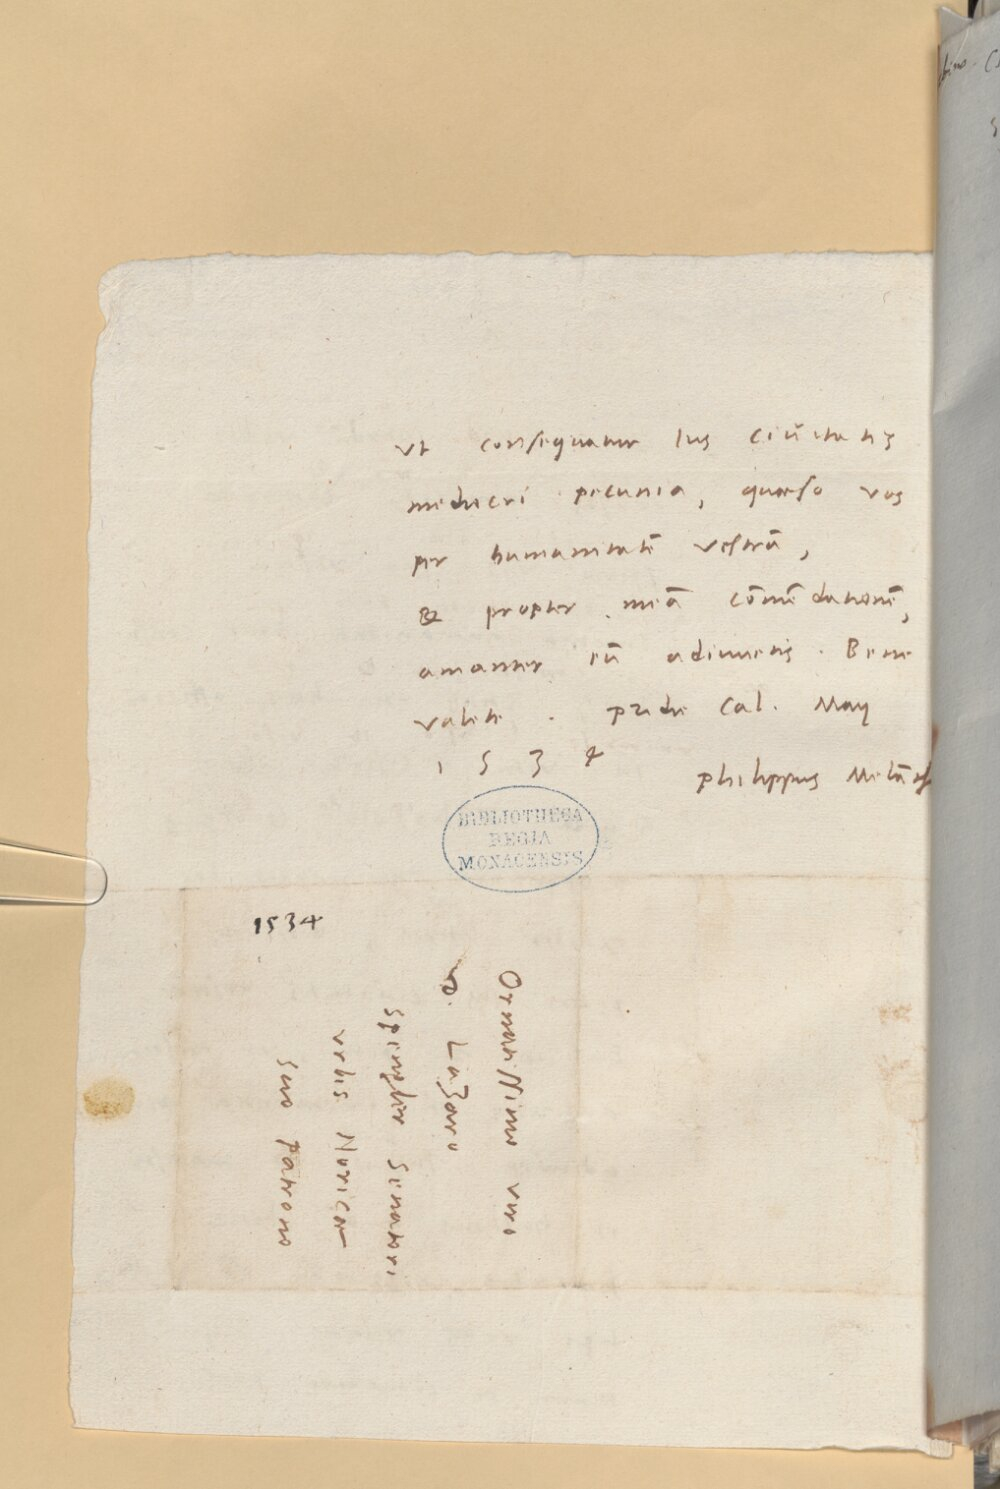 vt consequatur Ius ciũitatis
mediocri pecunia, quæso vos
per humanitatẽ vestrã,
& propter meã cõmẽdationẽ,
amanter eũ adiuuetis. Bene
valete. pridie Cal. Maij
1534
philippus Melãth
BIBLIOTHECA
REGIA
MONACENSIS
1534
Ornatissimo viro
D. Lazaro
Spengler Senatori
vrbis Noricæ
suo patrono